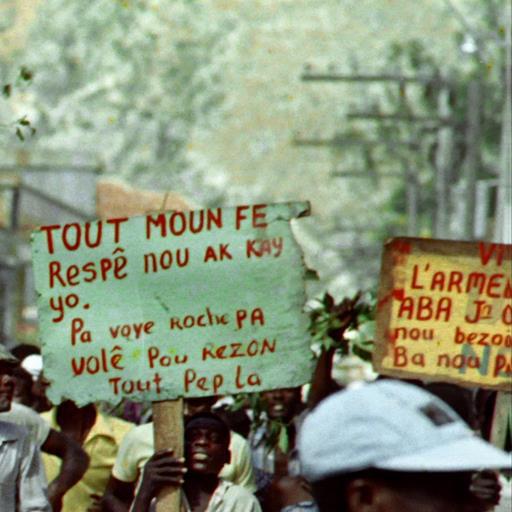 TOUT MOUN FE
Respê nou AK KAY
yo.
Pa voye Roche PA
volê Pou REZON
Tout Pep la
VI
L'ARME
ABA
nou bezoi
Ba nou